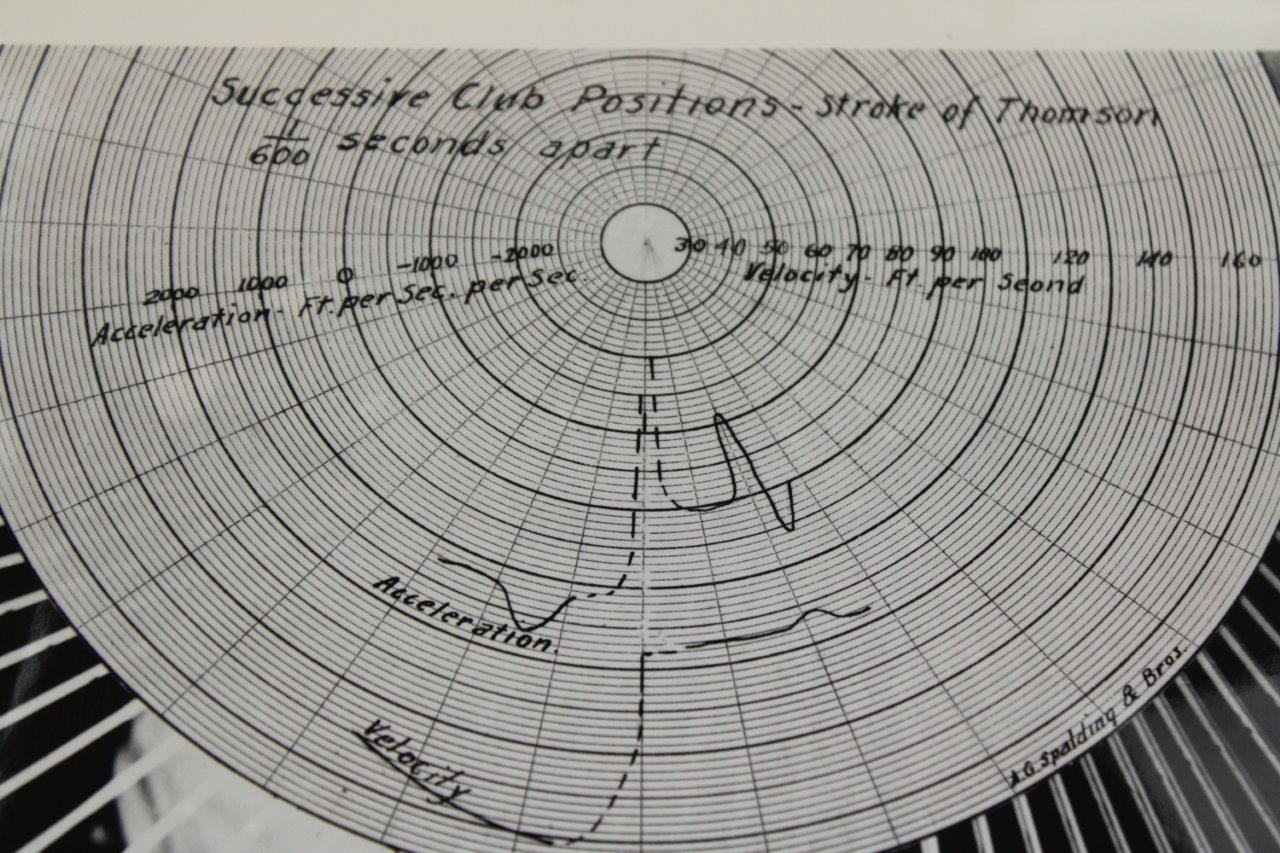 Successive Club Positions - Stroke of Thomson
1/600 seconds apart
2000 1000 0 -1000 -2000
Acceleration - Ft. per Sec. per Sec.
30 40 50 60 70 80 90 100 120 140 160
Velocity - Ft. per Seond
Acceleration.
Velocity
A.G. Spalding & Bros.